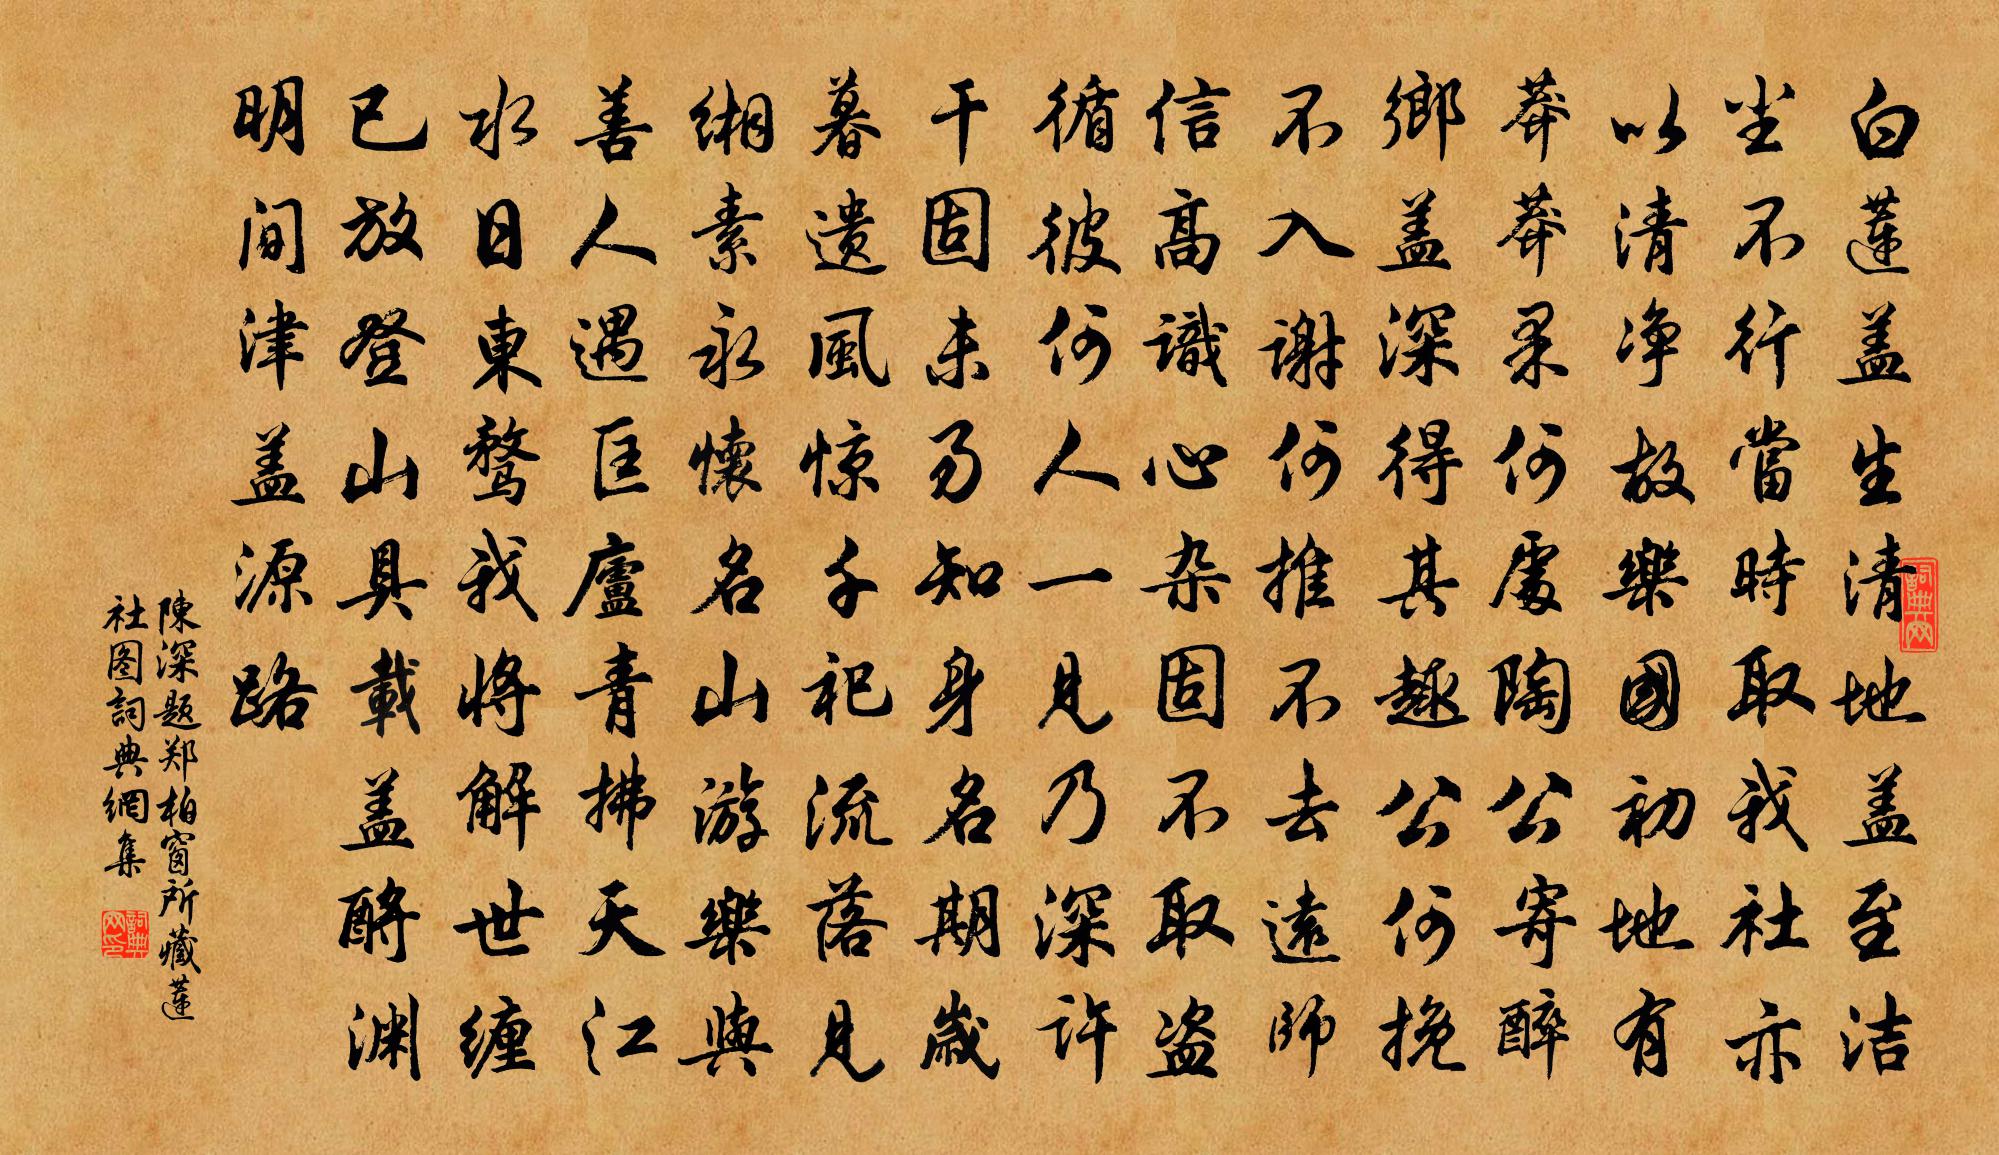 白蓮盖生清地盖至洁
坐不行當時取我社亦
以清净故樂國初地有
莽莽柔何處陶公寄醉
鄉盖深得其趣公何挽
不入謝何推不去遠師
信高識心杂固不取盗
循彼何人一見乃深许
干固未易知身名期歲
暮遗風惊千祀流落見
缃素永懷名山游樂與
善人遇匡廬青拂天江
水日東骛我将解世缠
已放登山具載盖酹渊
明间津盖源路
陳深题郑柏窗所藏蓮
社图詞典網集
詞典网
詞典网印